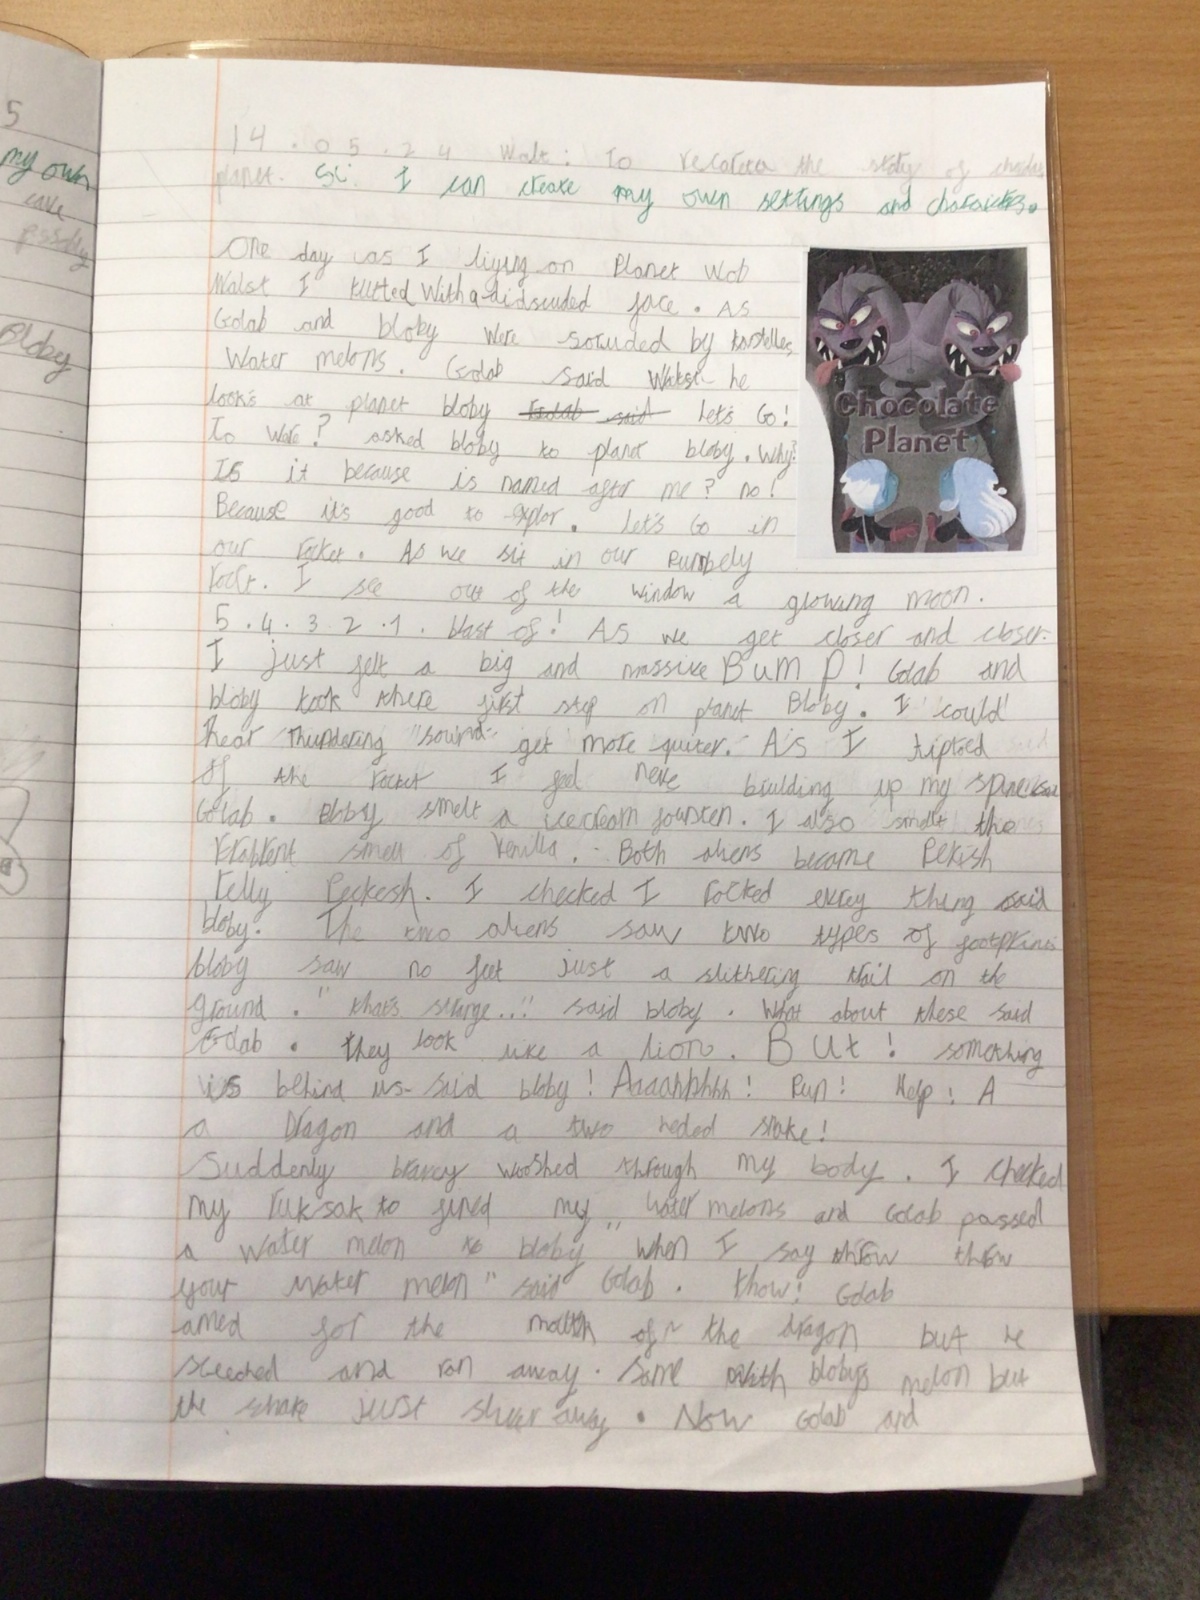 5
my own
Bloby
14.05.24 Walt: To recreate the story of
planet. SC: I can create my own settings and characters.
One day as I liying on Planet Wob
Walst I tutted with a face. As
Golab and bloby were soruded by
Water melons. Golab said he
look's at planet bloby Golab said Let's Go!
To Ware? asked bloby to planet bloby. Why?
Is it because is named after me? no!
Because it's good to explor. Let's Go in
our rocket. As we sit in our Rumbely
rockt. I see out of the window a glowing moon.
5.4.3.2.1. blast of! As we get closer and closer.
I just felt a big and massive BumP! Golab and
bloby took there first step on planet Bloby. I could
hear thundering "sound" get more quiter. As I tiptoed
of the rocket I feel building up my spine
Golab. Bloby smelt a icecream I also smelt the
smell of Venilla. Both aliens became Pekish
Peckesh. I checked I rocked thing said
bloby. The two aliens saw two types of footprints
bloby saw no feet just a slithering trail on the
ground. "that's strange..." said bloby. What about these said
Golab. they look like a lion. But! something
is behind us- said bloby! Aaaahhhhh! Run! Help! A
a Dragon and a two heded snake!
Suddenly wooshed through my body. I checked
my ruksak to fined my water melons and Golab passed
a water melon to bloby "when I say throw throw
your water melon" said Golab. thow! Golab
amed for the mouth of the dragon but he
and ran away. Same with bloby's melon but
the snake just away. Now Golab and
Chocolate
Planet